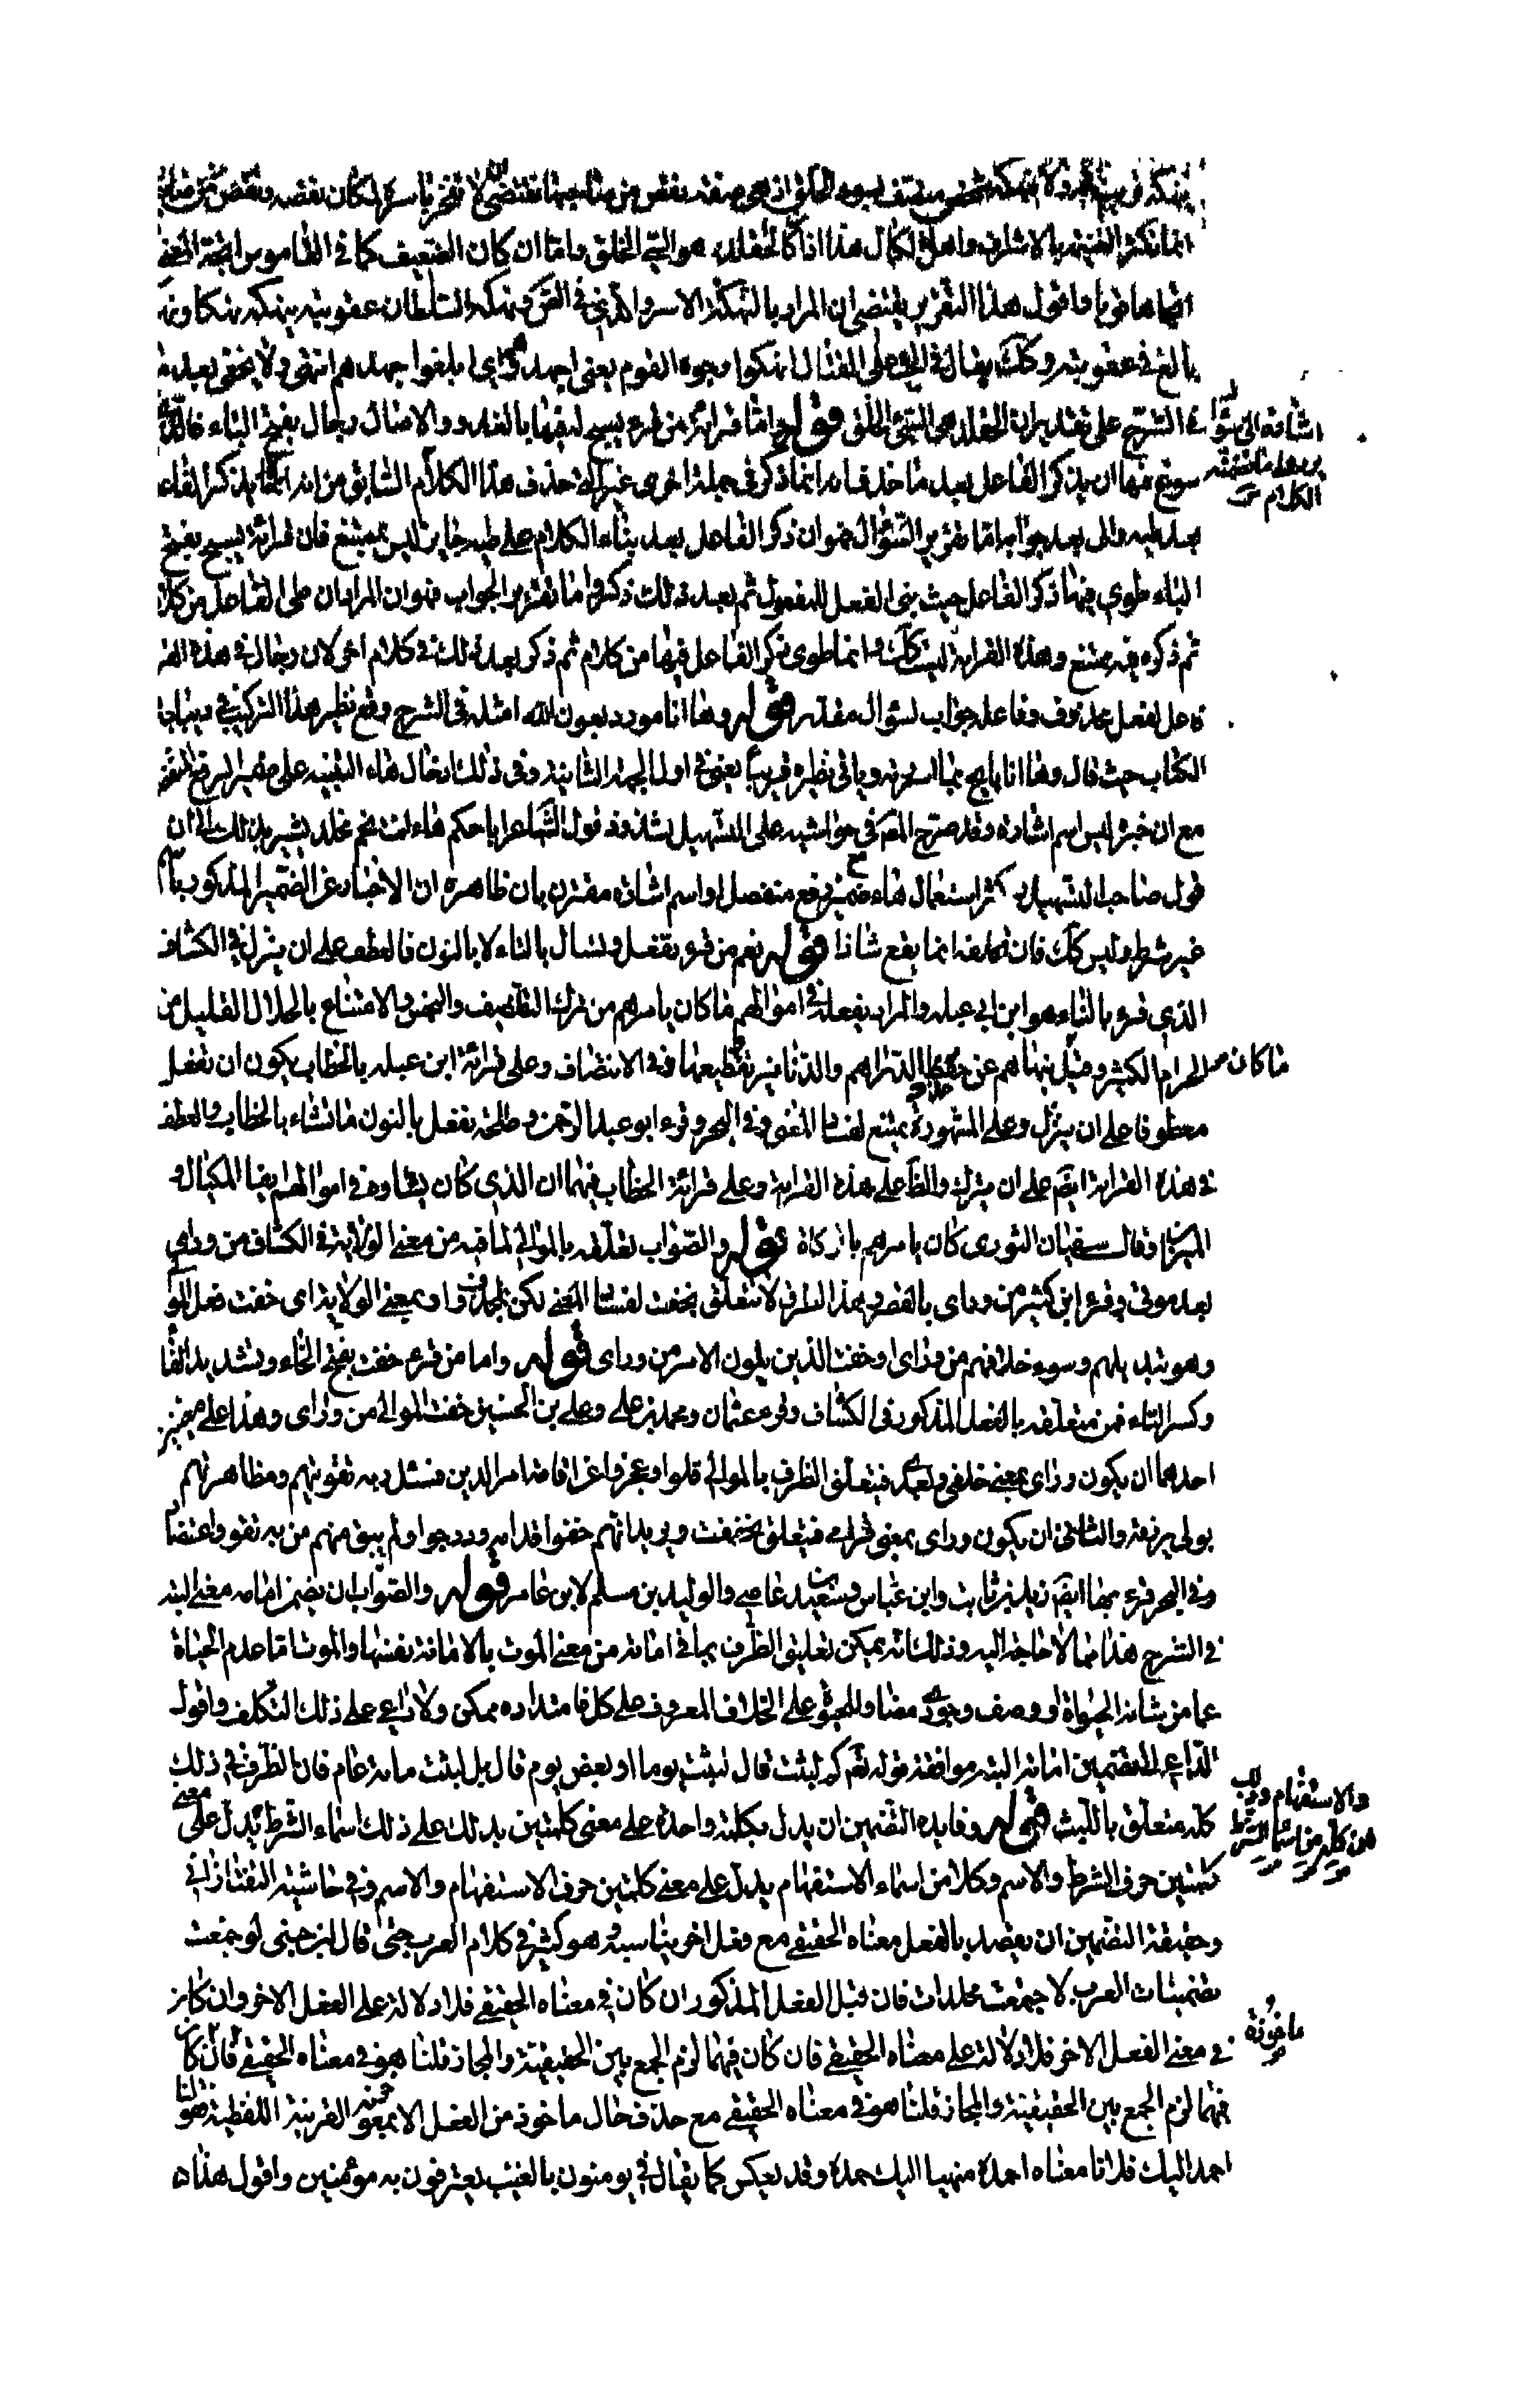 انما نكثر الغيبة بالاشراف واهل الكمال هذا اذا كان الحفلد هو السيئ الخلق واما ان كان الضعيف كما في القاموس
ايضا هاهنا واقول هذا التقرير يقتضي ان المراد بالنهكة الاسر والذي في نهكه السلطان عقوبته ينهكه نهكا ونهكة
بالغ في عقوبته وكك يقال في الحث على القتال انهكوا وجوه القوم يعني اجهدوهم اي ابلغوا جهدهم انتهى ولا يخفى بعد
في الشرح على تقدير ان الحفلد هو السيئ الخلق قوله واما قراءة من قرء يسبح له فيها بالغدو والاصال رجال بفتح الباء
سوغ فيها ان يذكر الفاعل بعد ما حذف انه انما ذكر في جملة اخرى غير التي حذف هذا الكلام السابق من انه
بعد واما تقرير السؤال فهو ان ذكر الفاعل بعد بناء الكلام على طيه جايز ليس بممتنع فان قراءة يسبح بفتح
الباء طوي فيها ذكر الفاعل حيث بني الفعل للمفعول ثم بعد ذلك ذكر واما تقرير الجواب فهو ان المراد ان طي الفاعل من كلام
ثم ذكره فيه ممتنع وهذه القراءة ليست كك وانما طوي ذكر الفاعل فيها من كلام ثم ذكر بعد ذلك في كلام اخر لان رجال في هذه
فاعل لفعل محذوف وفاعله جواب لسؤال مقدر قوله وها انا مورد بعون الله امثلة في الشرح وقع نظير هذا التركيب في ديباجة
الكتاب حيث قال وها انا بايح بما اسررته وياتي نظيره قريبا يعني في اول الجهة الثانية وفي ذلك ادخال هاء التنبيه على ضمير الرفع المنفصل
مع ان خبره ليس اسم اشارة وقد صرح المص في حواشيه على التسهيل بشذوذ قول الشاعر ابا حكم هاءنت نجم مجلد يشير بذلك الى ان
قول صاحب التسهيل كثر استعمال هاء مع ضمير رفع منفصل او اسم اشارة مقترن بان ظاهره ان الاخبار عن الضمير المذكور
غير شرط وليس كك فان تخلفه انما يقع شاذا قوله نعم من قرء تفعل وتشاء بالتاء لا بالنون فالعطف على ان يترك في الكشاف
الذي قرء بالتاء هو ابن ابي عبلة والمراد بفعله في اموالهم ما كان يامرهم من ترك التطفيف والبخس والاقتناع بالحلال القليل من
الحرام الكثير وقيل ينهاهم عن الدراهم والدنانير وتقطيعها في الانتصاف وعلى قراءة ابن عبلة بالخطاب يكون ان تفعل
معطوفا على ان يترك وعلى المشهورة يمتنع لفساد المعنى وفي البحر وقرء ابو عبد الرحمن وطلحة نفعل بالنون ما تشاء بالخطاب والعطف
في هذه القراءة ايضم على ان يترك والظ على هذه القراءة وعلى قراءة الخطاب فيهما ان الذي كان في اموالهم ايفا المكيال و
الميزان وقال سفيان الثوري كان يامرهم بالزكاة قوله والصواب تعلقه بالموالي لما فيه من معنى الولاية في الكشاف من ورائي
بعد موتي وقرء ابن كثير من وراي بالقصر وهذا الظرف لا تتعلق بخفت لفساد المعنى لكن بمحذوف او بمعنى الولاية اي خفت فعل الموالي
وهو تبديلهم وسوء خلافتهم من ورائي او خفت الذين يلون الامر من وراى قوله واما من قرء خفت بفتح الخاء وتشديد الفاء
وكسر التاء فمن متعلقه بالفعل المذكور في الكشاف وقرء عثمان ومحمد بن علي وعلي بن الحسين خفت الموالي من وراي وهذا على معنيين
احدهما ان يكون وراى بمعنى خلفي وبعدي فيتعلق الظرف بالموالي قلوا وعجزوا عن اقامة امر الدين فسئل ربه تقويتهم ومظاهرتهم
بولي يرزقه والثاني ان يكون وراى بمعنى قدامي فيتعلق بخفت ويريد انهم خفوا قدامه ودرجوا ولم يبق منهم من به تقو واعتضاد
وفي البحر قرء بها ايضم زيد بن ثابت وابن عباس وسعيد بن عاص والوليد بن مسلم لابن عامر قوله والصواب ان يضمن اماته معنى البثه
في الشرح هذا مما لا حاجة اليه وذلك انه يمكن تعليق الظرف بما في اماته من معنى الموت بالاماتة نفسها والموت اما عدم الحياة
عما من شانه الحياة او وصف وجودي مضاد للحيوة على الخلاف المعروف على كل فامتداده ممكن ولا داعي على ذلك التكلف واقول
الداعي الى تضمين اماته البثه موافقة قوله تعم كم لبثت قال لبثت يوما او بعض يوم قال بل لبثت ماية عام فان الظرف في ذلك
كله متعلق باللبث قوله وفايدة التضمين ان يدل بكلمة واحدة على معنى كلمتين يدلك على ذلك اسماء الشرط تدل على معنى
كلمتين حرف الشرط والاسم وكلا من اسماء الاستفهام يدل على معنى كلمتين حرف الاستفهام والاسم وفي حاشية التفتازاني
وحقيقة التضمين ان يقصد بالفعل معناه الحقيقي مع فعل اخر يناسبه وهو كثير في كلام العرب حتى قال ابن جني لو جمعت
تضمينات العرب لاجتمعت مجلدات فان قيل الفعل المذكور ان كان في معناه الحقيقي فلا دلالة على الفعل الاخر وان كان
في معنى الفعل الاخر فلا دلالة على معناه الحقيقي فان كان فيهما لزم الجمع بين الحقيقية والمجاز قلنا هو في معناه الحقيقي فان كان
فيهما لزم الجمع بين الحقيقية والمجاز قلنا هو في معناه الحقيقي مع حذف حال ماخوذ من الفعل الا بمعونة القرينة اللفظية
احمد اليك فلانا معناه احمده منهيا اليك حمده وقد يعكس كما يقال في يومنون بالغيب يعترفون به مؤمنين واقول هذا
اشارة الى
الكلام
ما كان
والاستفهام
ماخوذة